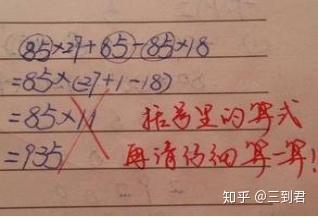 85×27+85-85×18
=85×(27+1-18)
=85×11 括号里的算式
=935 再请仔细算一算!
知乎 @三到君